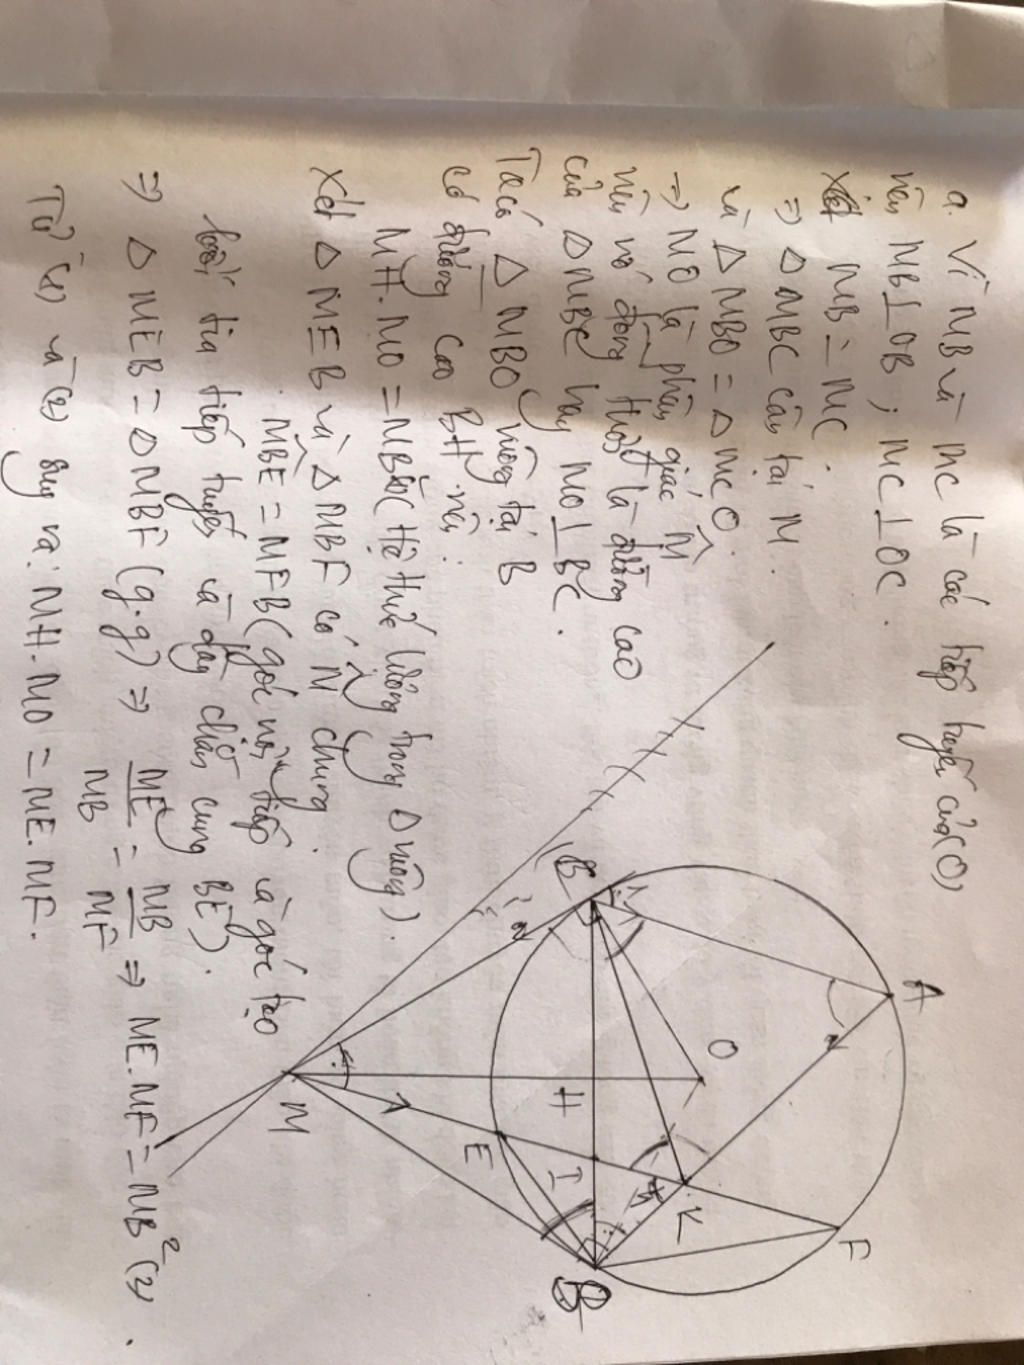 a. Vì MB và MC là các tiếp tuyến của (O)
nên MB⊥OB ; MC⊥OC.
Xét MB = MC.
⇒ ΔMBC cân tại M.
và ΔMBO = ΔMCO.
⇒ MO là phân giác M̂
nên nó đồng thời là đường cao
của ΔMBC hay MO⊥BC.
Ta có ΔMBO vuông tại B
có đường cao BH nên:
MH.MO = MB² (Hệ thức lượng trong Δ vuông).
Xét ΔMEB và ΔMBF có M̂ chung.
MBE = MFB (góc nội tiếp và góc tạo
bởi tia tiếp tuyến và dây chắn cung BE).
⇒ ΔMEB = ΔMBF (g.g) ⇒ ME/MB = MB/MF ⇒ ME.MF = MB² (2).
Từ (1) và (2) suy ra: MH.MO = ME.MF.
A
O
F
K
H
I
E
B
M